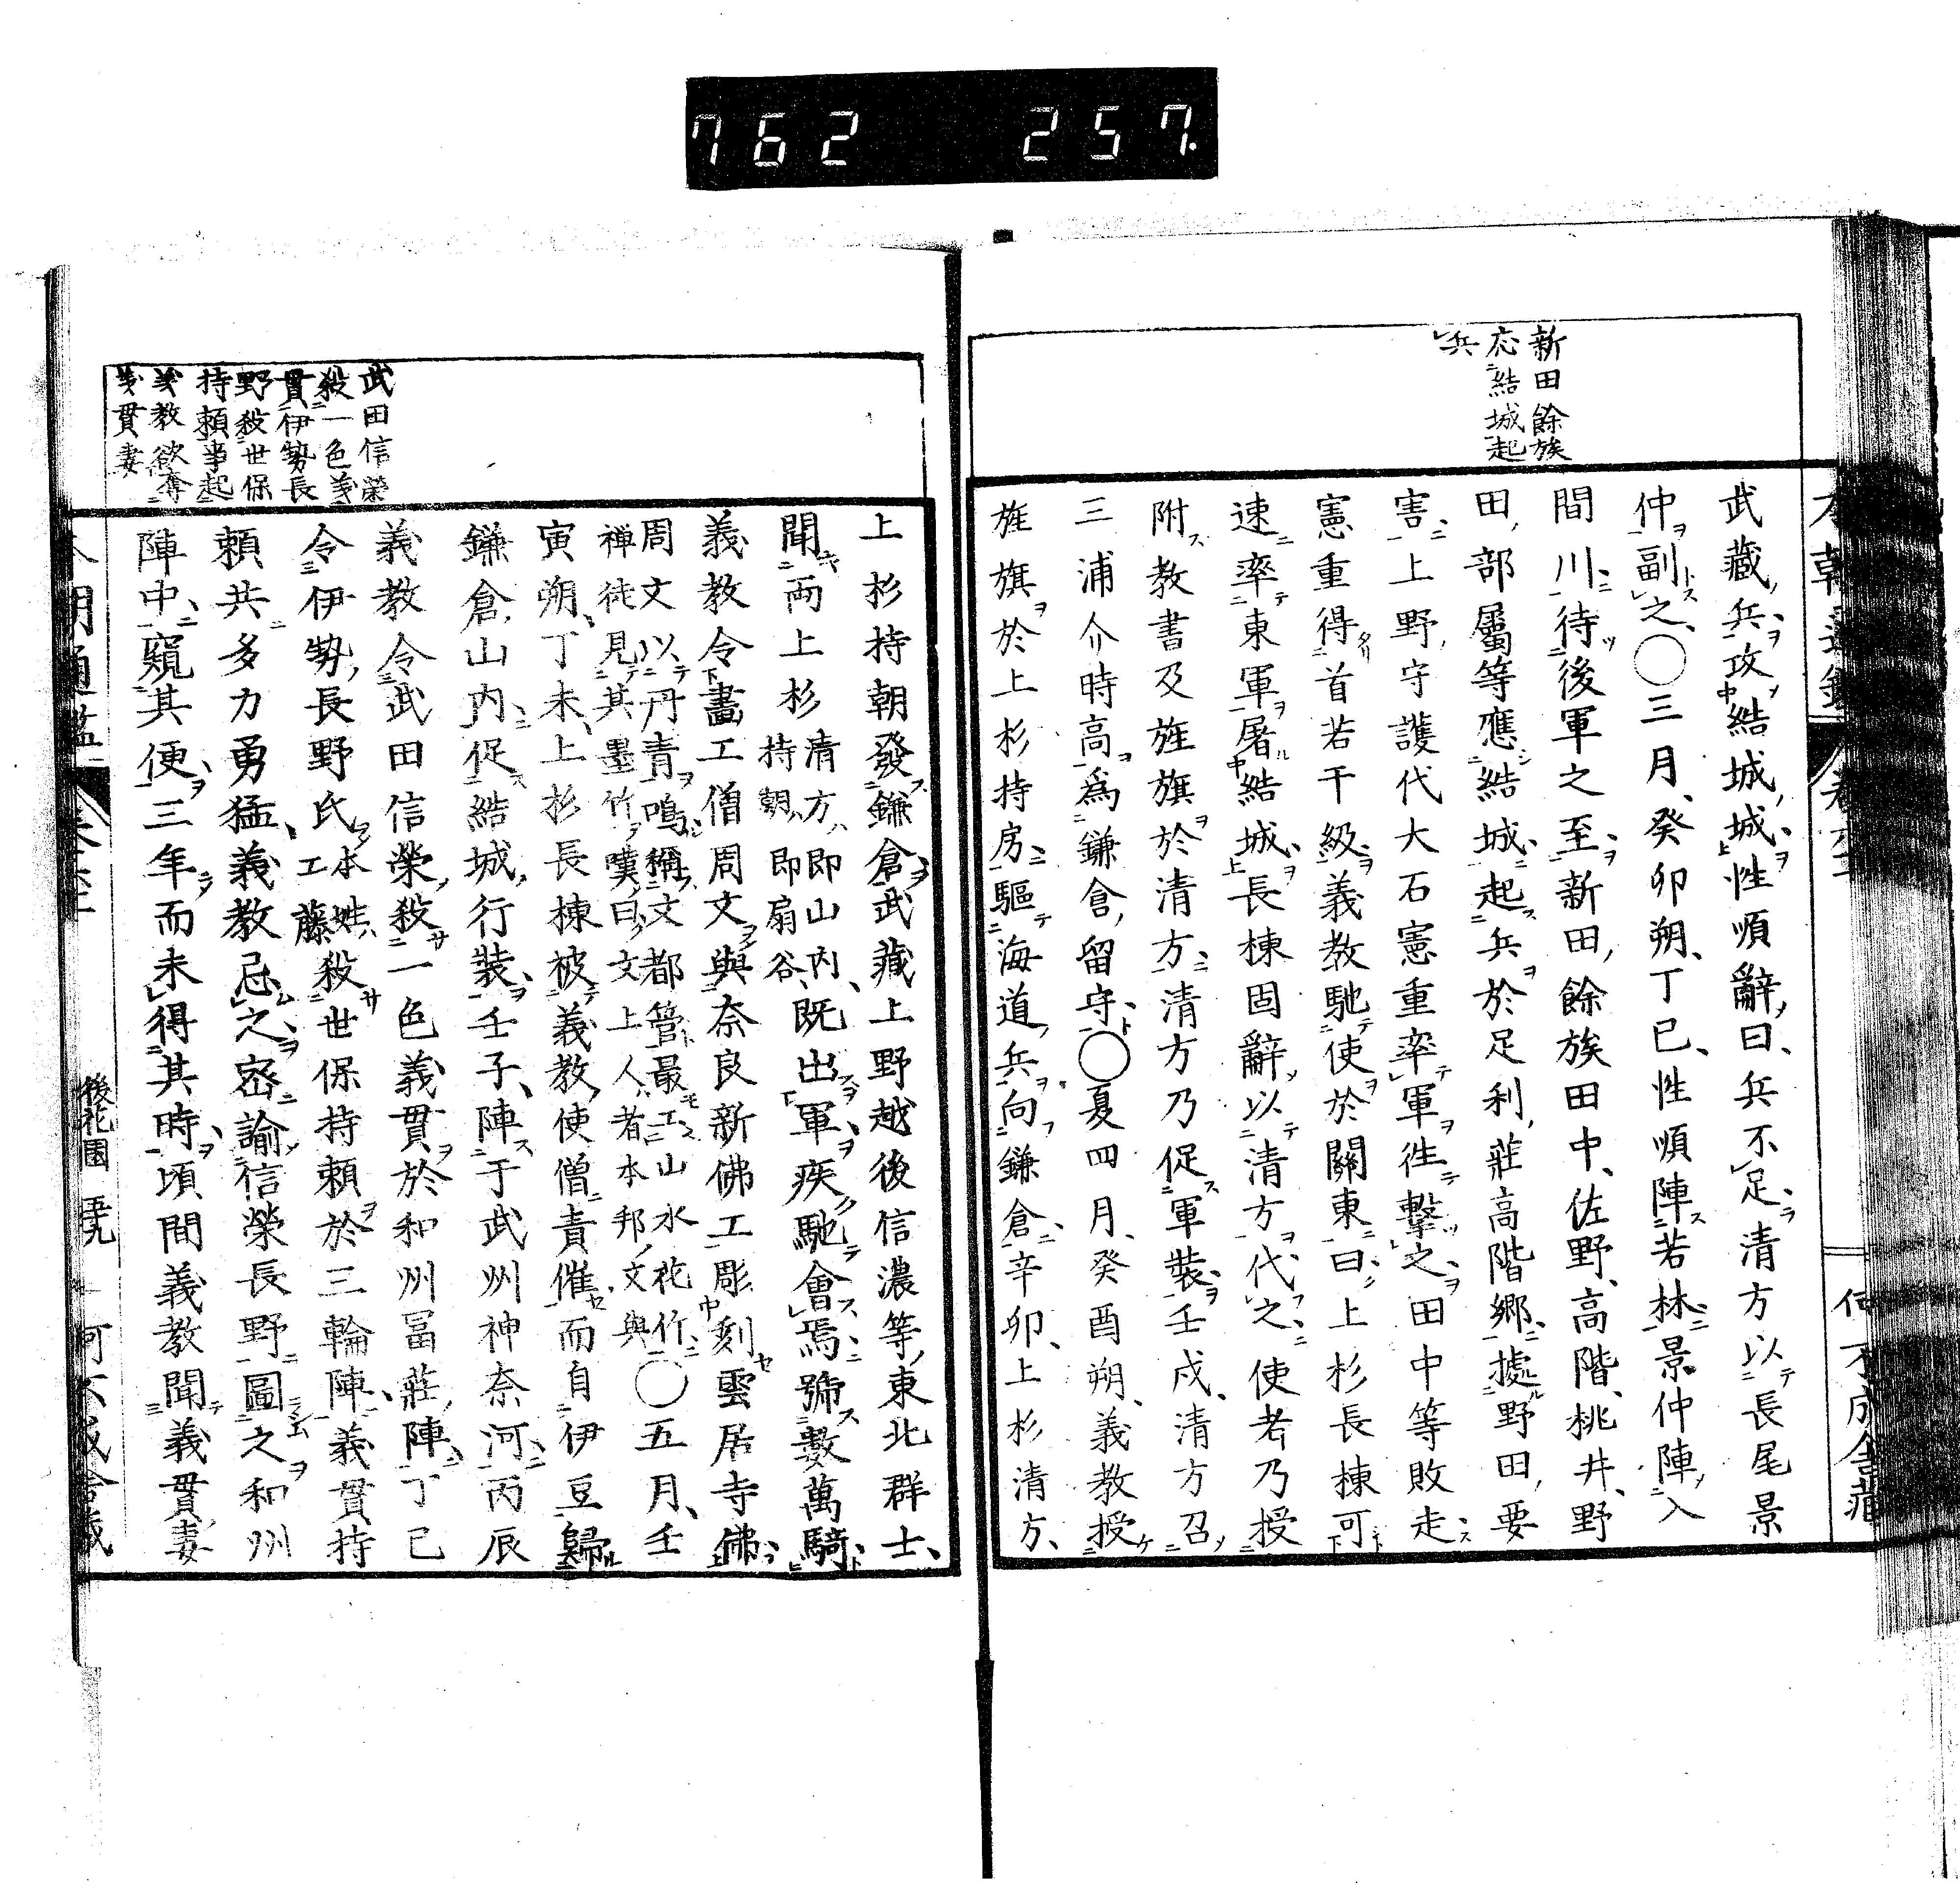 762 257.
新田餘族
応結城起
兵
武藏兵攻結城城性順辭曰兵不足清方以長尾景
仲副之〇三月癸卯朔丁巳性順陣若林景仲陣入
間川待後軍之至新田餘族田中佐野高階桃井野
田部屬等應結城起兵於足利莊高階郷據野田要
害上野守護代大石憲重率軍徃擊之田中等敗走
憲重得首若干級義教馳使於關東曰上杉長棟可
速率東軍屠結城長棟固辭以清方代之使者乃授
附教書及旌旗於清方清方乃促軍裝壬戌清方召
三浦介時高爲鎌倉留守〇夏四月癸酉朔義教授
旌旗於上杉持房驅海道兵向鎌倉辛卯上杉清方
武田信榮
殺一色義
貫伊勢長
野殺世保
持頼事起
義教欲奪
義貫妻
上杉持朝發鎌倉武藏上野越後信濃等東北群士
聞兩上杉清方ハ即山内持朝ハ即扇谷既出軍疾馳會焉號數萬騎
義教令畫工僧周文與奈良新佛工彫刻雲居寺佛
周文以丹青鳴稱文都管最工山水花竹
禅徒見其墨竹嘆曰文上人者本邦文與〇五月壬
寅朔丁未上杉長棟被義教使僧責催而自伊豆歸
鎌倉山内促結城行裝壬子陣于武州神奈河丙辰
義教令武田信榮殺一色義貫於和州冨莊陣丁巳
令伊勢長野氏本姓ハ工藤殺世保持頼於三輪陣義貫持
頼共多力勇猛義教忌之密諭信榮長野圖之和州
陣中窺其便三年而未得其時頃間義教聞義貫妻
後花園